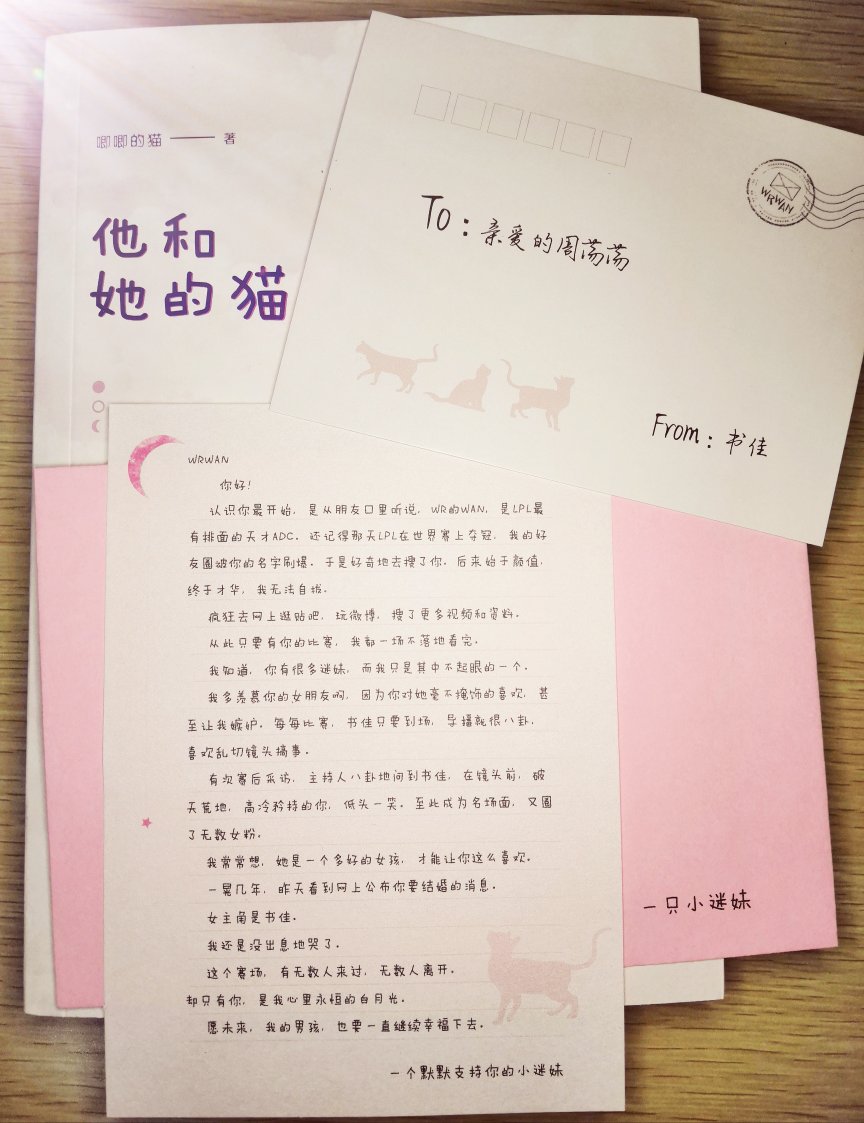 唧唧的猫——著
他和
她的猫
WRWAN
To：亲爱的周荡荡
From：书佳
WRWAN
你好！
认识你最开始，是从朋友口里听说，WR的WAN，是LPL最
有排面的天才ADC。还记得那天LPL在世界赛上夺冠，我的好
友圈被你的名字刷爆。于是好奇地去搜了你。后来始于颜值，
终于才华，我无法自拔。
疯狂去网上逛贴吧，玩微博，搜了更多视频和资料。
从此只要有你的比赛，我都一场不落地看完。
我知道，你有很多迷妹，而我只是其中不起眼的一个。
我多羡慕你的女朋友啊，因为你对她毫不掩饰的喜欢，甚
至让我嫉妒。每每比赛，书佳只要到场，导播就很八卦，
喜欢乱切镜头搞事。
有次赛后采访，主持人八卦地问到书佳，在镜头前，破
天荒地，高冷矜持的你，低头一笑。至此成为名场面，又圈
了无数女粉。
我常常想，她是一个多好的女孩，才能让你这么喜欢。
一晃几年，昨天看到网上公布你要结婚的消息。
女主角是书佳。
我还是没出息地哭了。
这个赛场，有无数人来过，无数人离开。
却只有你，是我心里永恒的白月光。
愿未来，我的男孩，也要一直继续幸福下去。
一个默默支持你的小迷妹
一只小迷妹